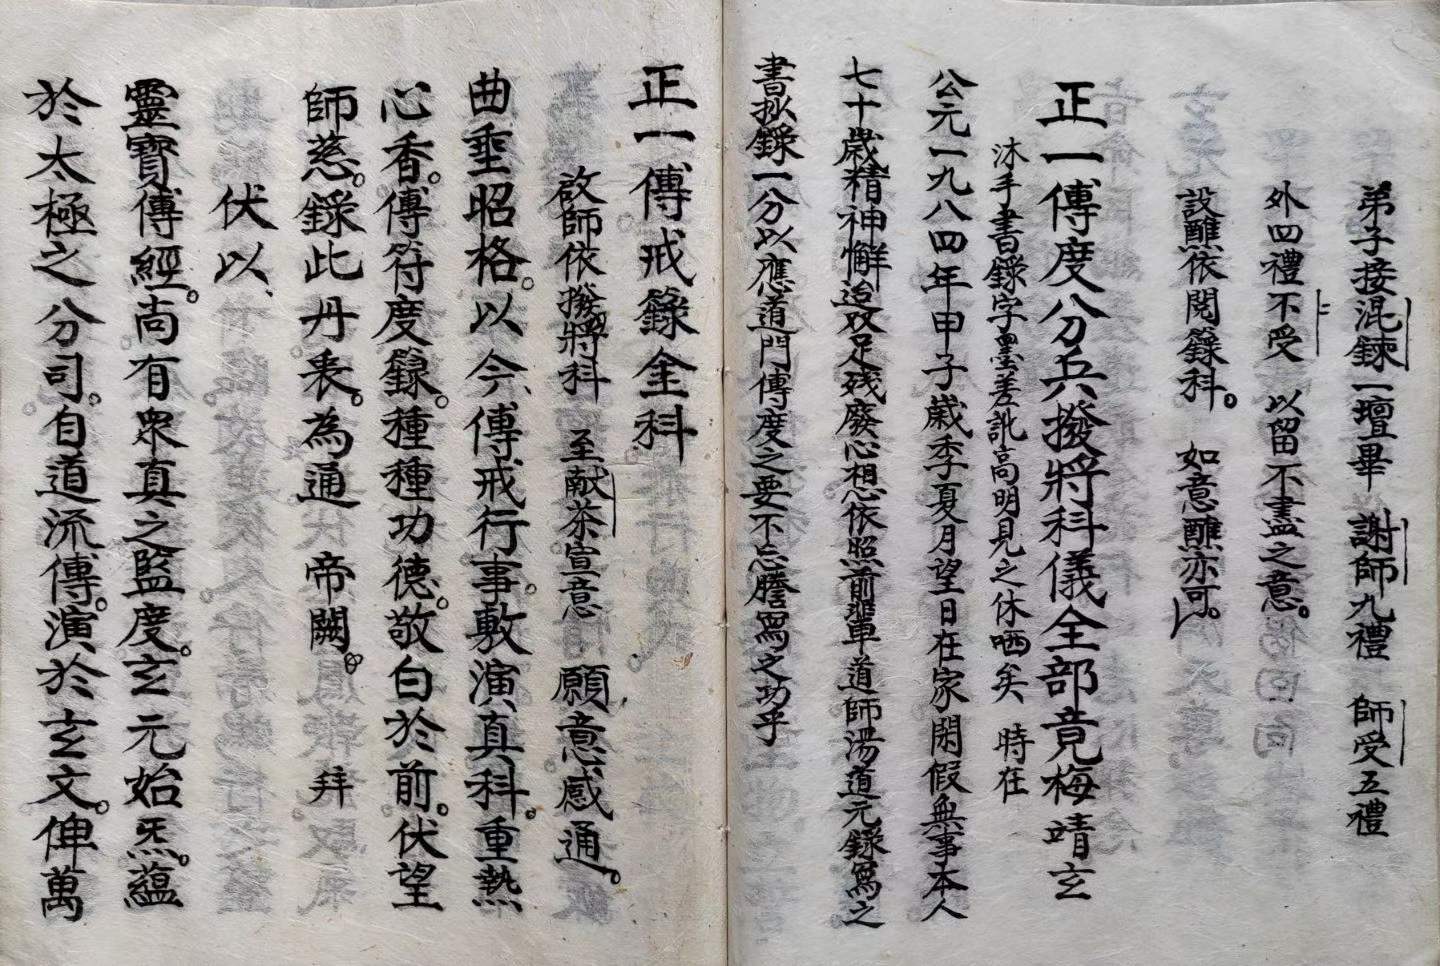 弟子接混鍊一壇畢 謝師九禮 師受五禮
外四禮不受 以留不盡之意。
設醮依閱籙科。 如意醮亦可。
正一傳度分兵撥將科儀全部竟梅靖玄
沐手書錄字墨差訛高明見之休哂矣 時在
公元一九八四年甲子歲季夏月望日在家閑假無事本人
七十歲精神懈迨双足残廢心想依照前輩道師湯道元錄寫之
書拟錄一分以應道門傳度之要不忘謄寫之功乎
正一傳戒籙全科
啟師依撥將科 至献茶宣意 願意感通。
曲垂昭格。以今傳戒行事。敷演真科。重熱
心香。傳符度籙。種種功德。敬白於前。伏望
師慈。錄此丹衷。為通 帝闕。 拜
伏以
靈寶傳經。尚有眾真之監度。玄元始炁。蘊
於太極之分司。自道流傳。演於玄文。俾萬